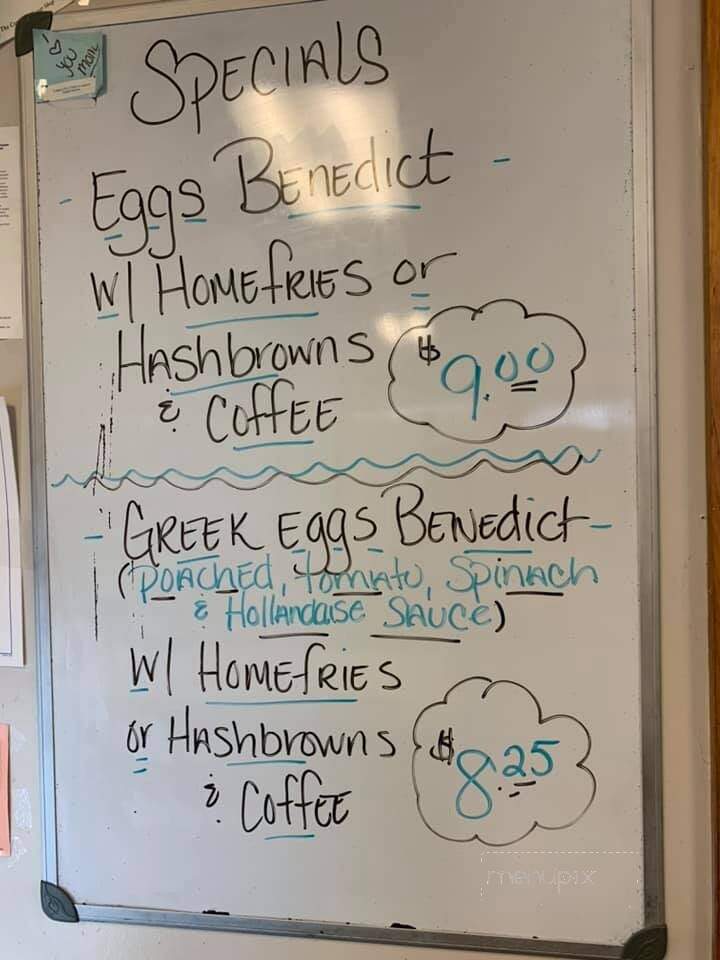 I ♡ you mom
SPECIALS
- Eggs Benedict -
W/ Homefries or
Hashbrowns
& Coffee
$9.00
- Greek Eggs Benedict -
(Poached, Tomato, Spinach
& Hollandaise Sauce)
W/ Homefries
or Hashbrowns
& Coffee
$8.25
menupix